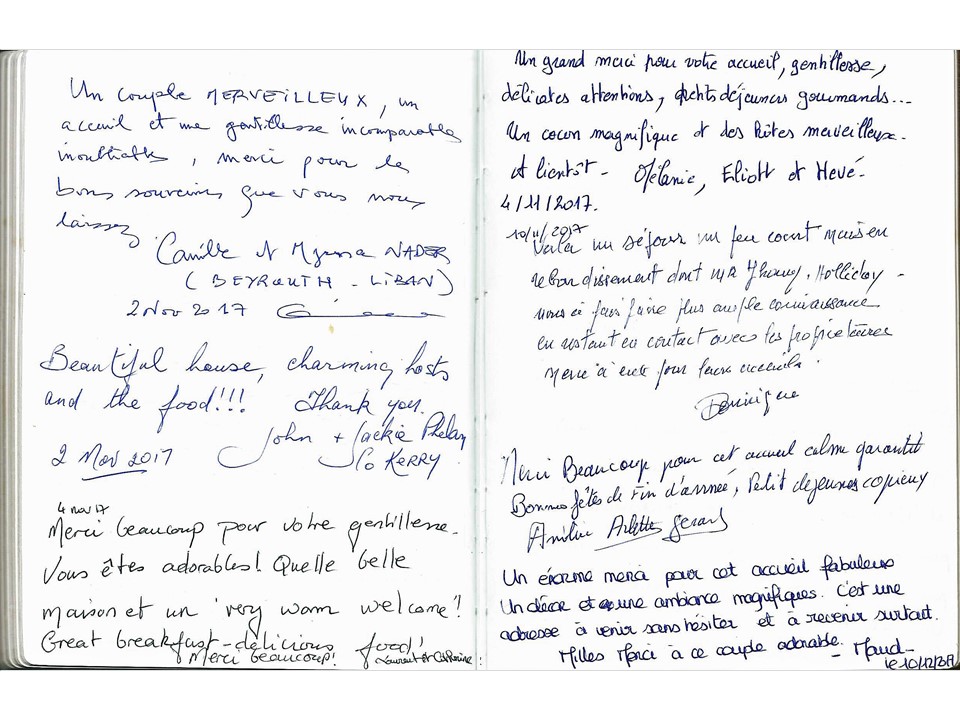 Un couple MERVEILLEUX, un
accueil et une gentillesse incomparable
inoubliable, merci pour les
bons souvenirs que vous nous
laissez.
Camille et NADER
(BEYROUTH - LIBAN)
2 Nov 2017
Beautiful house, charming hosts
and the food!!! Thank you.
John + Jackie Phelan
2 Nov 2017 Co KERRY.
4 nov 17
Merci beaucoup pour votre gentillesse.
Vous êtes adorables! Quelle belle
maison et un 'very warm welcome'!
Great breakfast - delicious food!
Merci beaucoup! Laurent et Catherine!
Un grand merci pour votre accueil, gentillesse,
délicates attentions, petits déjeuners gourmands...
Un cocon magnifique et des hôtes merveilleux.
A bientôt - Mélanie, Eliott et Hervé.
4/11/2017.
10/11/2017
Voilà un séjour un peu court mais en
rebondissement dont
nous a fait faire plus ample connaissance
en restant en contact avec les propriétaires
Merci à eux pour leurs accueils!
Dominique
Merci Beaucoup pour cet accueil calme garantit
Bonnes fêtes de Fin d'année, Petit dejeunes copieux
Arlette Gerard
Un énorme merci pour cet accueil fabuleux
Un décor et une ambiance magnifiques. C'est une
adresse à venir sans hésiter et à revenir surtout.
Milles Merci à ce couple adorable. - Maud -
le 10/12/2017